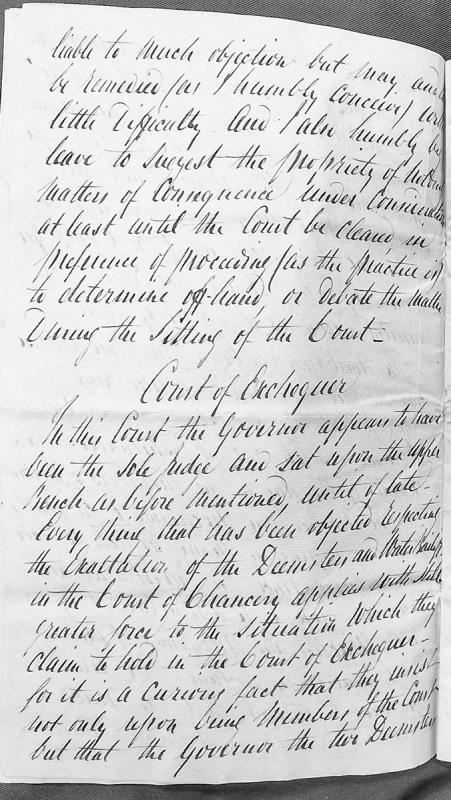 liable to much objection but may and
be remedied (as I humbly conceive) with
little Difficulty And I also humbly beg
leave to suggest the propriety of
matters of Consequence under Consideration
at least until the Court be cleared, in
preference of proceeding (as the practice is)
to determine off-hand, or Debate the matter
During the Sitting of the Court –
Court of Exchequer
In this Court the Governor appears to have
been the Sole Judge and sat upon the upper
bench as before mentioned, until of late –
Every thing that has been objected respecting
the exaltation of the Deemsters and Water Bailiff
in the Court of Chancery applies with still
greater force to the Situation which they
Claim to hold in the Court of Exchequer –
for it is a curious fact that they insist
not only upon being Members of the Court
but that the Governor the two Deemsters